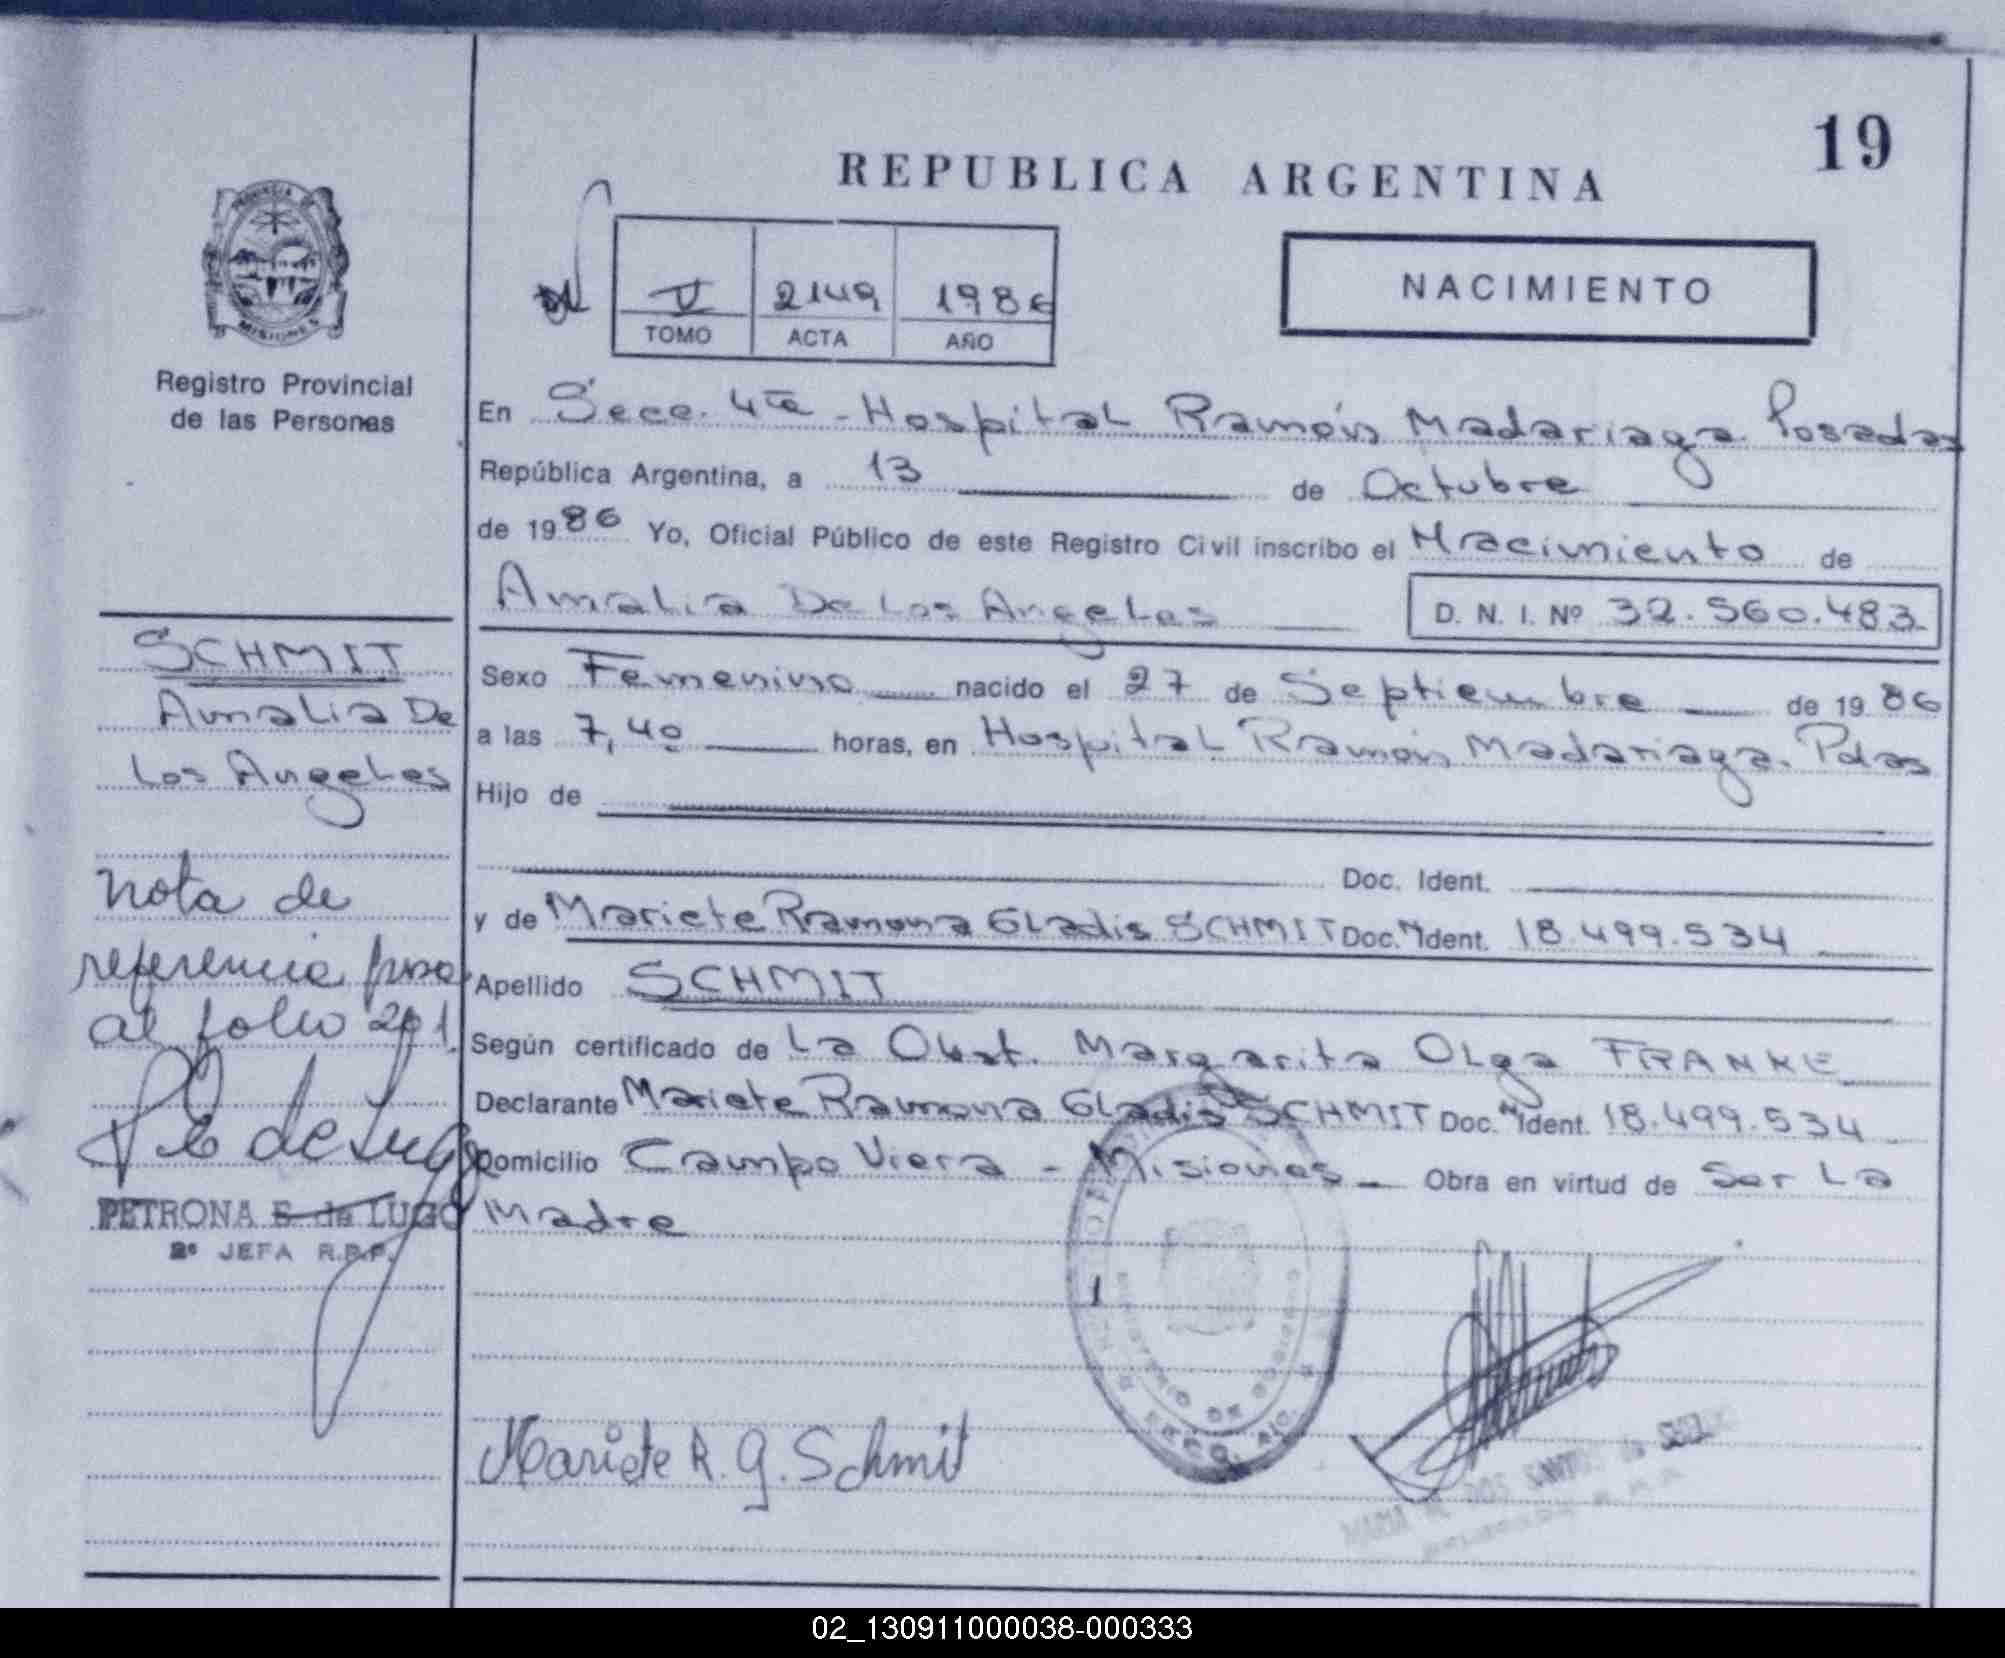 19
REPUBLICA ARGENTINA
PROVINCIA DE
MISIONES
Registro Provincial
de las Personas
V 2149 1986
TOMO ACTA AÑO
NACIMIENTO
En Secc. 4ta - Hospital Ramón Madariaga Posadas
República Argentina, a 13 de Octubre
de 1986 Yo, Oficial Público de este Registro Civil inscribo el Nacimiento de
Amalia De Los Angeles D. N. I. Nº 32.560.483
Sexo Femenino nacido el 27 de Septiembre de 1986
a las 7,40 horas, en Hospital Ramón Madariaga. Pdas
Hijo de
Doc. Ident.
y de Mariete Ramona Gladis SCHMIT Doc. Ident. 18.499.534
Apellido SCHMIT
Según certificado de La Obst. Margarita Olga FRANKE
Declarante Mariete Ramona Gladis SCHMIT Doc. Ident. 18.499.534
Domicilio Campo Viera - Misiones - Obra en virtud de Ser La
Madre
SCHMIT
Amalia De
Los Angeles
Nota de
referencia pasa
al folio 201.
P E de Lugo
PETRONA E. de LUGO
2º JEFA R.P.P.
MINISTERIO DE GOBIERNO
Mariete R. G. Schmit
DOS SANTOS de
02_130911000038-000333